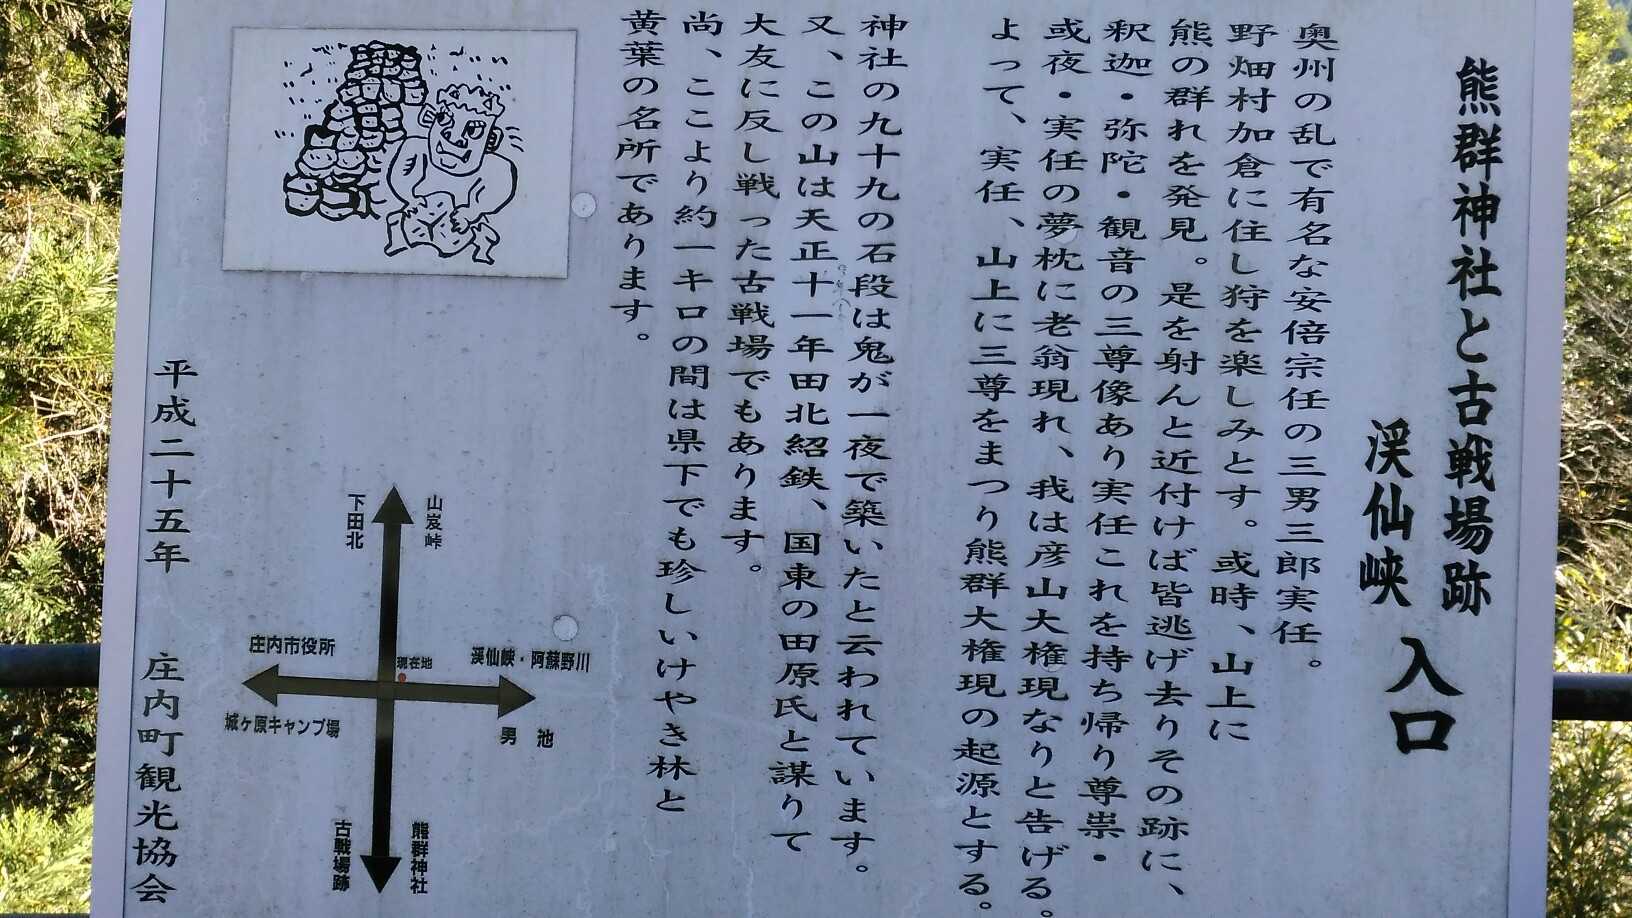 熊群神社と古戦場跡
渓仙峡
入口
奥州の乱で有名な安倍宗任の三男三郎実任。
野畑村加倉に住し狩を楽しみとす。或時、山上に
熊の群れを発見。是を射んと近付けば皆逃げ去りその跡に、
釈迦・弥陀・観音の三尊像あり実任これを持ち帰り尊崇・
或夜・実任の夢枕に老翁現れ、我は彦山大権現なりと告げる。
よって、実任、山上に三尊をまつり熊群大権現の起源とする。
神社の九十九の石段は鬼が一夜で築いたと云われています。
又、この山は天正十一年田北紹鉄、国東の田原氏と謀りて
大友に反し戦った古戦場でもあります。
尚、ここより約一キロの間は県下でも珍しいけやき林と
黄葉の名所であります。
山岌峠
下田北
庄内市役所
城ヶ原キャンプ場
現在地
渓仙峡・阿蘇野川
男池
熊群神社
古戦場跡
平成二十五年 庄内町観光協会